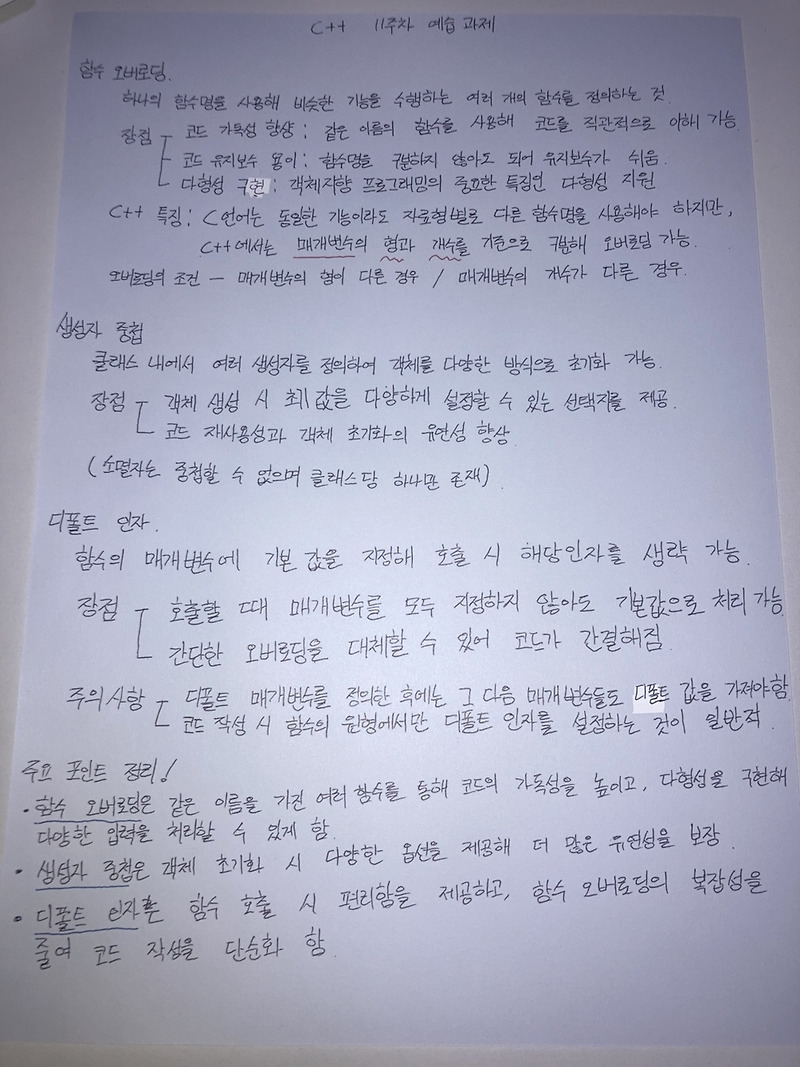 C++ 11주차 예습 과제
함수 오버로딩.
하나의 함수명을 사용해 비슷한 기능을 수행하는 여러 개의 함수를 정의하는 것.
장점 - 코드 가독성 향상 : 같은 이름의 함수를 사용해 코드를 직관적으로 이해 가능.
- 코드 유지보수 용이 : 함수명을 구분하지 않아도 되어 유지보수가 쉬움.
- 다형성 구현 : 객체지향 프로그래밍의 중요한 특징인 다형성 지원
C++ 특징 : C언어는 동일한 기능이라도 자료형별로 다른 함수명을 사용해야 하지만,
C++에서는 매개변수의 형과 개수를 기준으로 구분해 오버로딩 가능.
오버로딩의 조건 - 매개변수의 형이 다른 경우 / 매개변수의 개수가 다른 경우.
생성자 중첩
클래스 내에서 여러 생성자를 정의하여 객체를 다양한 방식으로 초기화 가능.
장점 - 객체 생성 시 초기값을 다양하게 설정할 수 있는 선택지를 제공.
- 코드 재사용성과 객체 초기화의 유연성 향상.
(소멸자는 중첩할 수 없으며 클래스당 하나만 존재)
디폴트 인자.
함수의 매개변수에 기본 값을 지정해 호출 시 해당인자를 생략 가능.
장점 - 호출할 때 매개변수를 모두 지정하지 않아도 기본값으로 처리 가능.
- 간단한 오버로딩을 대체할 수 있어 코드가 간결해짐.
주의사항 - 디폴트 매개변수를 정의한 후에는 그 다음 매개변수들도 디폴트 값을 가져야함.
- 코드 작성 시 함수의 원형에서만 디폴트 인자를 설정하는 것이 일반적.
주요 포인트 정리!
• 함수 오버로딩은 같은 이름을 가진 여러 함수를 통해 코드의 가독성을 높이고, 다형성을 구현해
다양한 입력을 처리할 수 있게 함.
• 생성자 중첩은 객체 초기화 시 다양한 옵션을 제공해 더 많은 유연성을 보장.
• 디폴트 인자는 함수 호출 시 편리함을 제공하고, 함수 오버로딩의 복잡성을
줄여 코드 작성을 단순화 함.